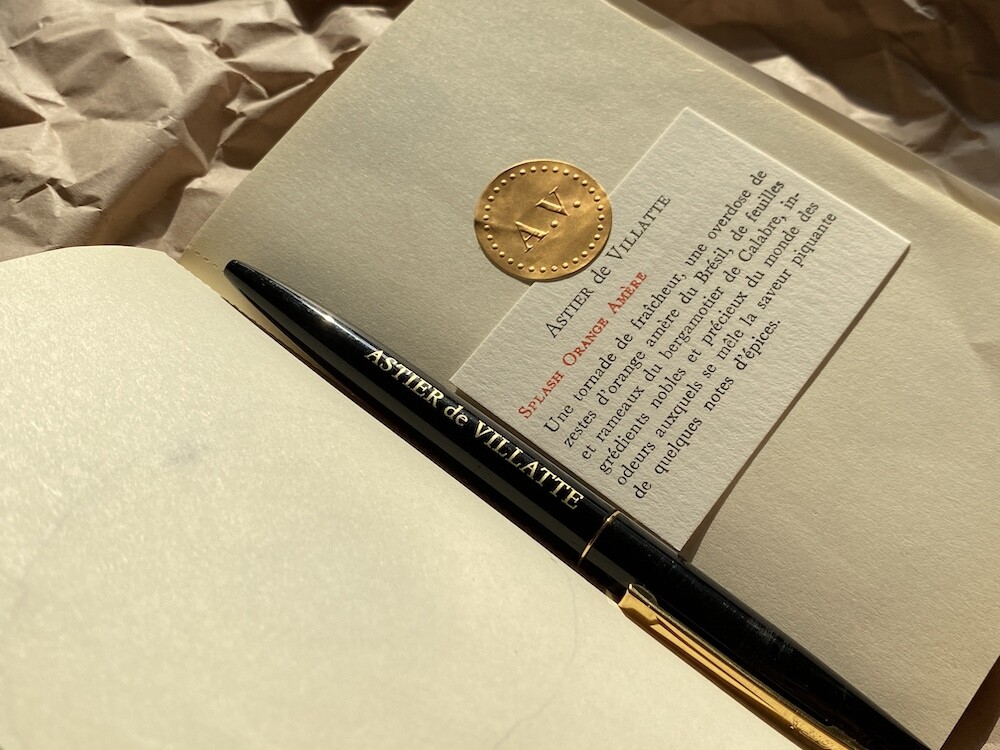 A.V.
ASTIER de VILLATTE
SPLASH ORANGE AMÈRE
Une tornade de fraîcheur, une overdose de
zestes d'orange amère du Brésil, de feuilles
et rameaux du bergamotier de Calabre, in-
grédients nobles et précieux du monde des
odeurs auxquels se mêle la saveur piquante
de quelques notes d'épices.
ASTIER de VILLATTE